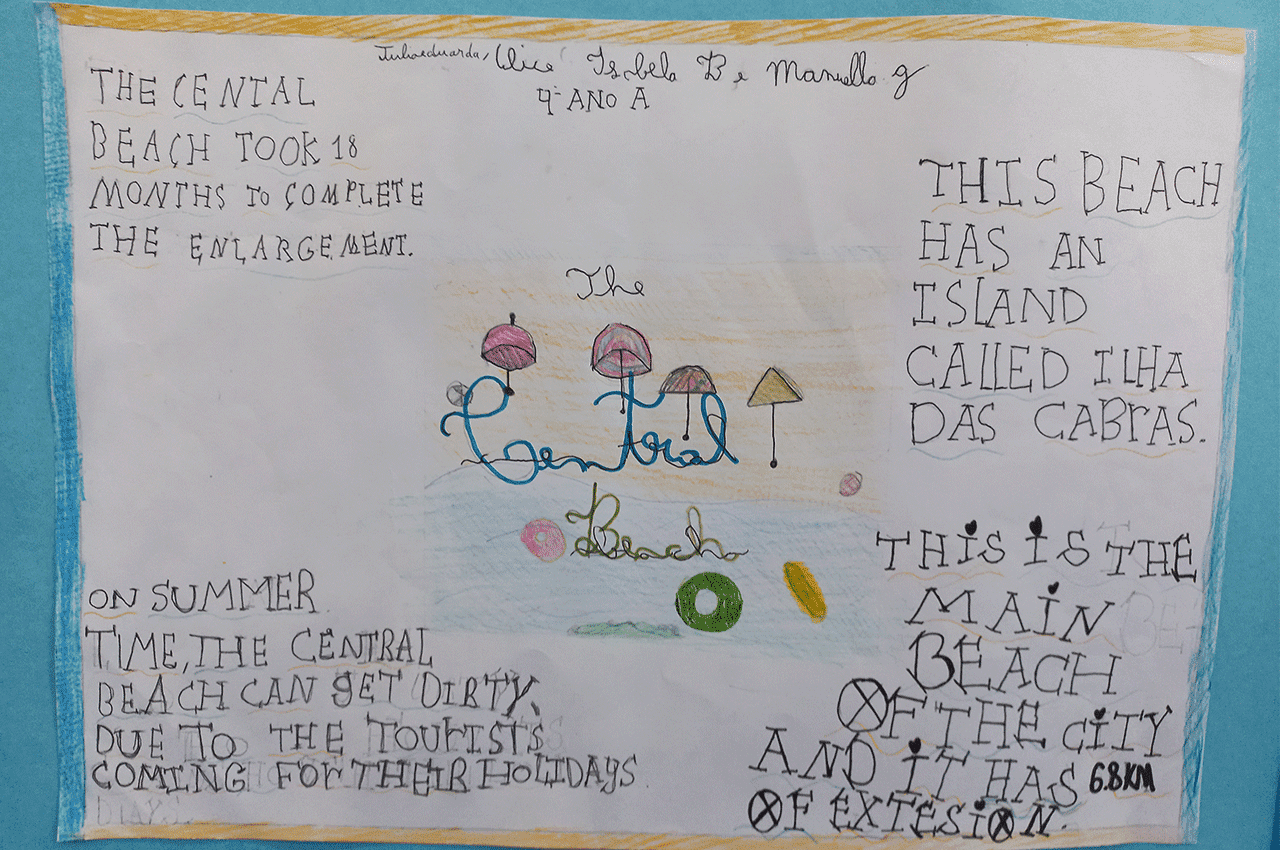 Juliaeduarda, Alice Isabela B e Manuella g
4º ANO A
THE CENTAL
BEACH TOOK 18
MONTHS TO COMPLETE
THE ENLARGEMENT.
THIS BEACH
HAS AN
ISLAND
CALLED ILHA
DAS CABRAS.
The
Central
Beach
ON SUMMER
TIME, THE CENTRAL
BEACH CAN GET DIRTY,
DUE TO THE TOURISTS
COMING FOR THEIR HOLIDAYS
THIS IS THE
MAIN
BEACH
OF THE CITY
AND IT HAS 6.8KM
OF EXTESION.